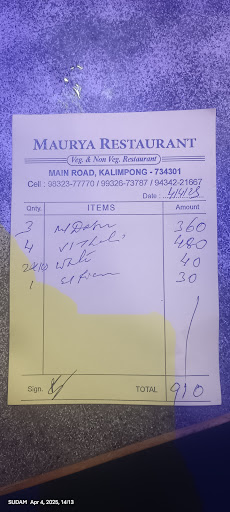 MAURYA RESTAURANT
Veg. & Non Veg. Restaurant
MAIN ROAD, KALIMPONG - 734301
Cell : 98323-77770 / 99326-73787 / 94342-21667
Date : 4/4/25
Qnty. ITEMS Amount
3 360
4 V Thali 480
2x10 40
1 30
Sign. TOTAL 910
SUDAM Apr 4, 2025, 14:13